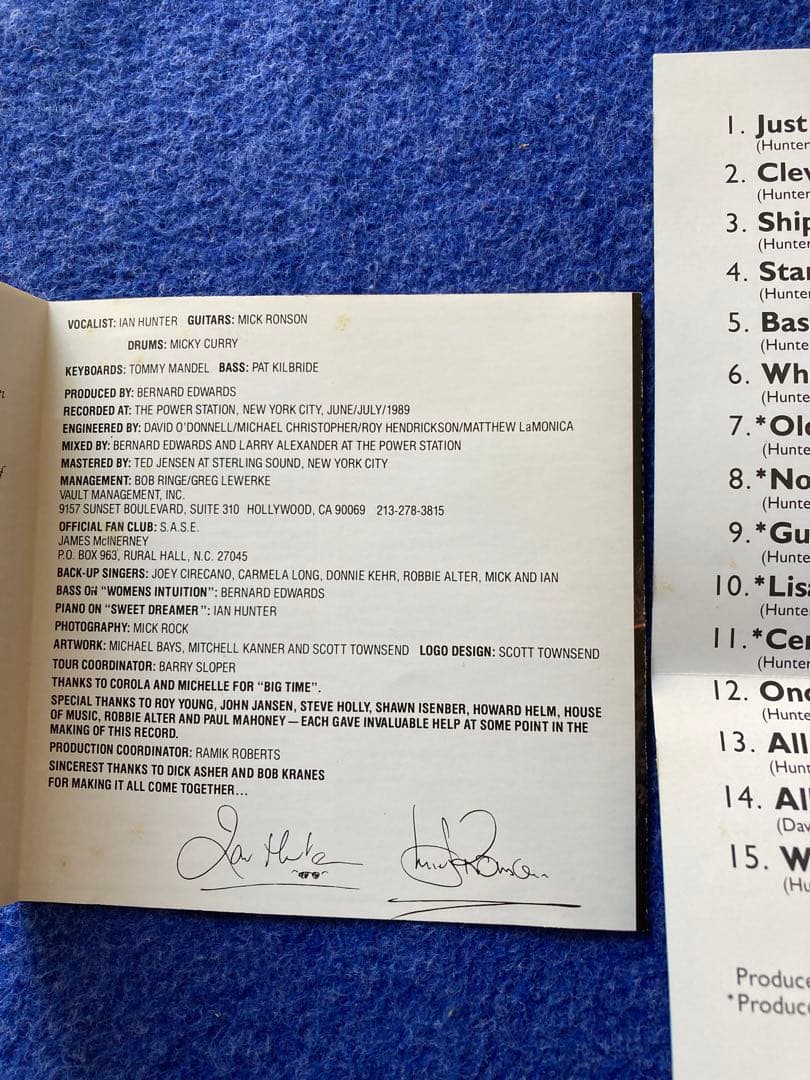 VOCALIST: IAN HUNTER GUITARS: MICK RONSON
DRUMS: MICKY CURRY
KEYBOARDS: TOMMY MANDEL BASS: PAT KILBRIDE
PRODUCED BY: BERNARD EDWARDS
RECORDED AT: THE POWER STATION, NEW YORK CITY, JUNE/JULY/1989
ENGINEERED BY: DAVID O'DONNELL/MICHAEL CHRISTOPHER/ROY HENDRICKSON/MATTHEW LaMONICA
MIXED BY: BERNARD EDWARDS AND LARRY ALEXANDER AT THE POWER STATION
MASTERED BY: TED JENSEN AT STERLING SOUND, NEW YORK CITY
MANAGEMENT: BOB RINGE/GREG LEWERKE
VAULT MANAGEMENT, INC.
9157 SUNSET BOULEVARD, SUITE 310 HOLLYWOOD, CA 90069 213-278-3815
OFFICIAL FAN CLUB: S.A.S.E.
JAMES McINERNEY
P.O. BOX 963, RURAL HALL, N.C. 27045
BACK-UP SINGERS: JOEY CIRECANO, CARMELA LONG, DONNIE KEHR, ROBBIE ALTER, MICK AND IAN
BASS ON "WOMENS INTUITION": BERNARD EDWARDS
PIANO ON "SWEET DREAMER": IAN HUNTER
PHOTOGRAPHY: MICK ROCK
ARTWORK: MICHAEL BAYS, MITCHELL KANNER AND SCOTT TOWNSEND LOGO DESIGN: SCOTT TOWNSEND
TOUR COORDINATOR: BARRY SLOPER
THANKS TO COROLA AND MICHELLE FOR "BIG TIME".
SPECIAL THANKS TO ROY YOUNG, JOHN JANSEN, STEVE HOLLY, SHAWN ISENBER, HOWARD HELM, HOUSE
OF MUSIC, ROBBIE ALTER AND PAUL MAHONEY — EACH GAVE INVALUABLE HELP AT SOME POINT IN THE
MAKING OF THIS RECORD.
PRODUCTION COORDINATOR: RAMIK ROBERTS
SINCEREST THANKS TO DICK ASHER AND BOB KRANES
FOR MAKING IT ALL COME TOGETHER...
Ian Hunter Mick Ronson
1. Just
(Hunter
2. Clev
(Hunter
3. Ship
(Hunter
4. Star
(Hunter
5. Bas
(Hunte
6. Wh
(Hunte
7. *Old
(Hunte
8. *No
(Hunte
9. *Gu
(Hunte
10. *Lisa
(Hunte
11. *Cer
(Hunter
12. Onc
(Hunt
13. All
(Hunt
14. Al
(Dav
15. W
(Hu
Produce
*Produce